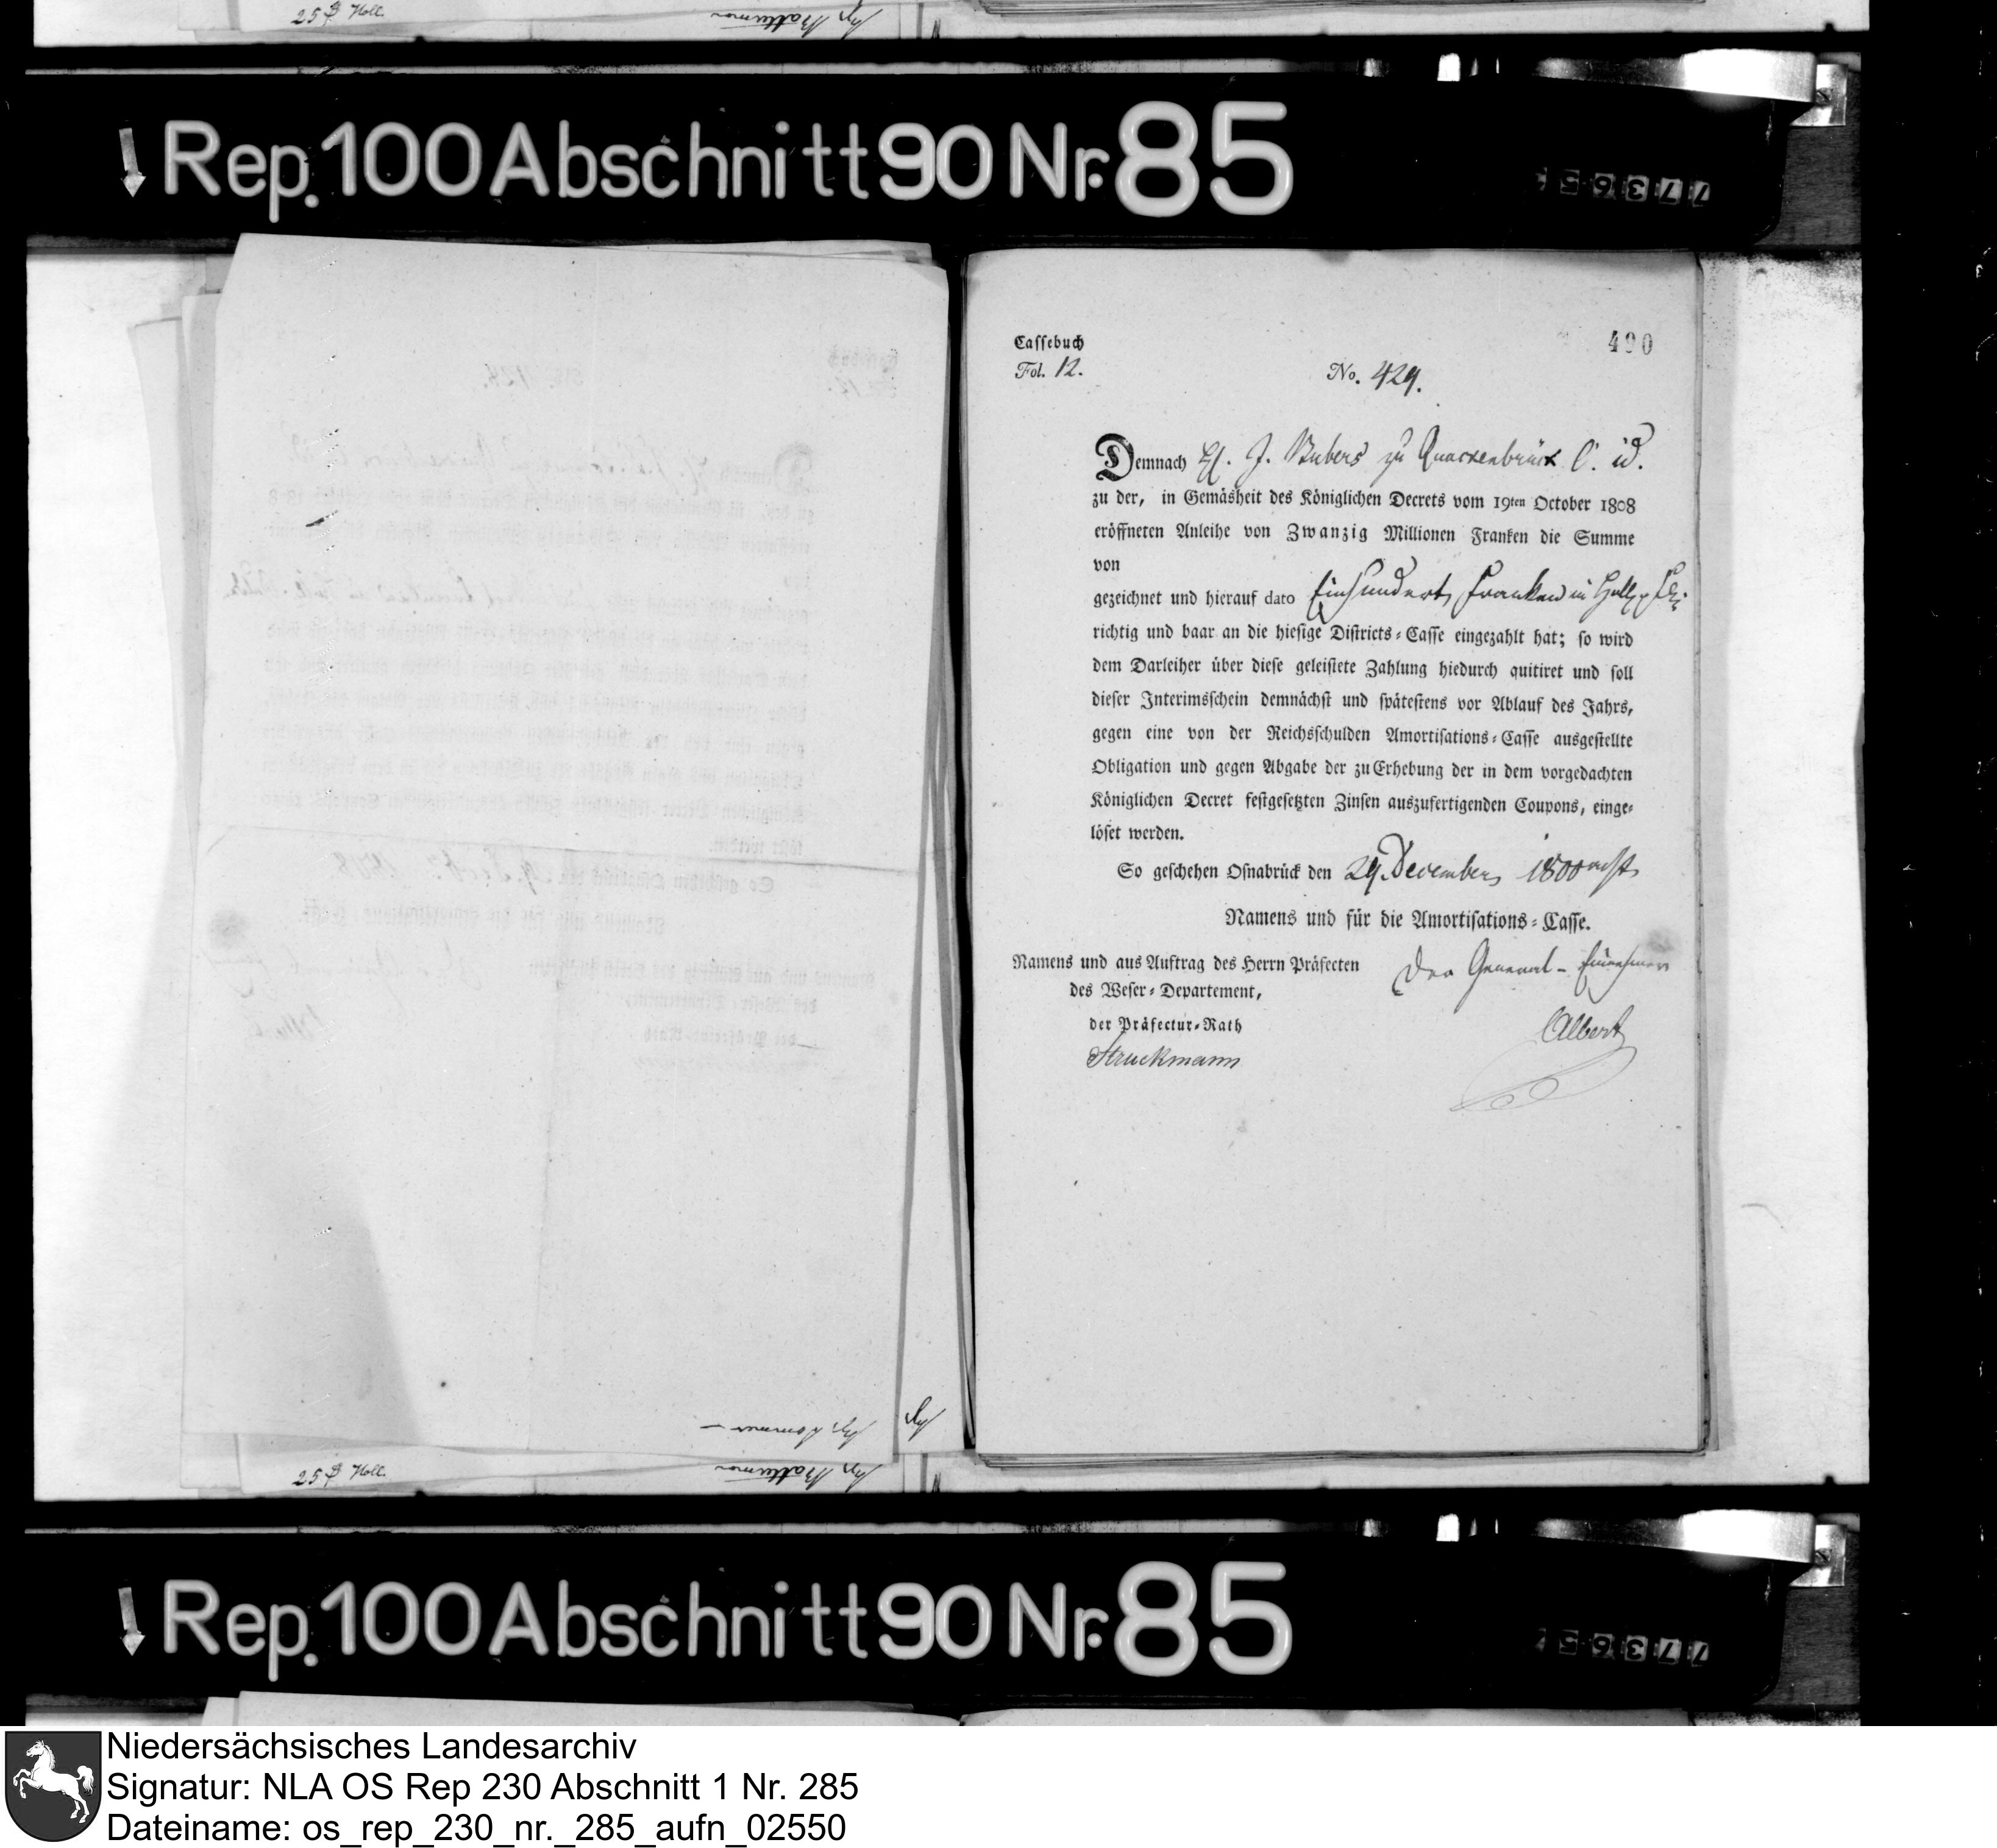 25 Holl.
Rep. 100 Abschnitt 90 Nr. 85
Cassebuch
490
Fol. 12.
No. 429.
Demnach H. J. Bubers zu Quackenbrück C. id.
zu der, in Gemäsheit des Königlichen Decrets vom 19ten October 1808
eröffneten Anleihe von Zwanzig Millionen Franken die Summe
von
gezeichnet und hierauf dato Einhundert Franken in
richtig und baar an die hiesige Districts-Casse eingezahlt hat; so wird
dem Darleiher über diese geleistete Zahlung hiedurch quitiret und soll
dieser Interimsschein demnächst und spätestens vor Ablauf des Jahrs,
gegen eine von der Reichsschulden Amortisations-Casse ausgestellte
Obligation und gegen Abgabe der zu Erhebung der in dem vorgedachten
Königlichen Decret festgesetzten Zinsen auszufertigenden Coupons, einge-
löset werden.
So geschehen Osnabrück den 29. December 1800 acht
Namens und für die Amortisations-Casse.
Namens und aus Auftrag des Herrn Präfecten
Der General-Einnehmer
des Weser-Departement,
der Präfectur-Rath
Albert
Struckmann
25 Holl.
Rep. 100 Abschnitt 90 Nr. 85
Niedersächsisches Landesarchiv
Signatur: NLA OS Rep 230 Abschnitt 1 Nr. 285
Dateiname: os_rep_230_nr._285_aufn_02550